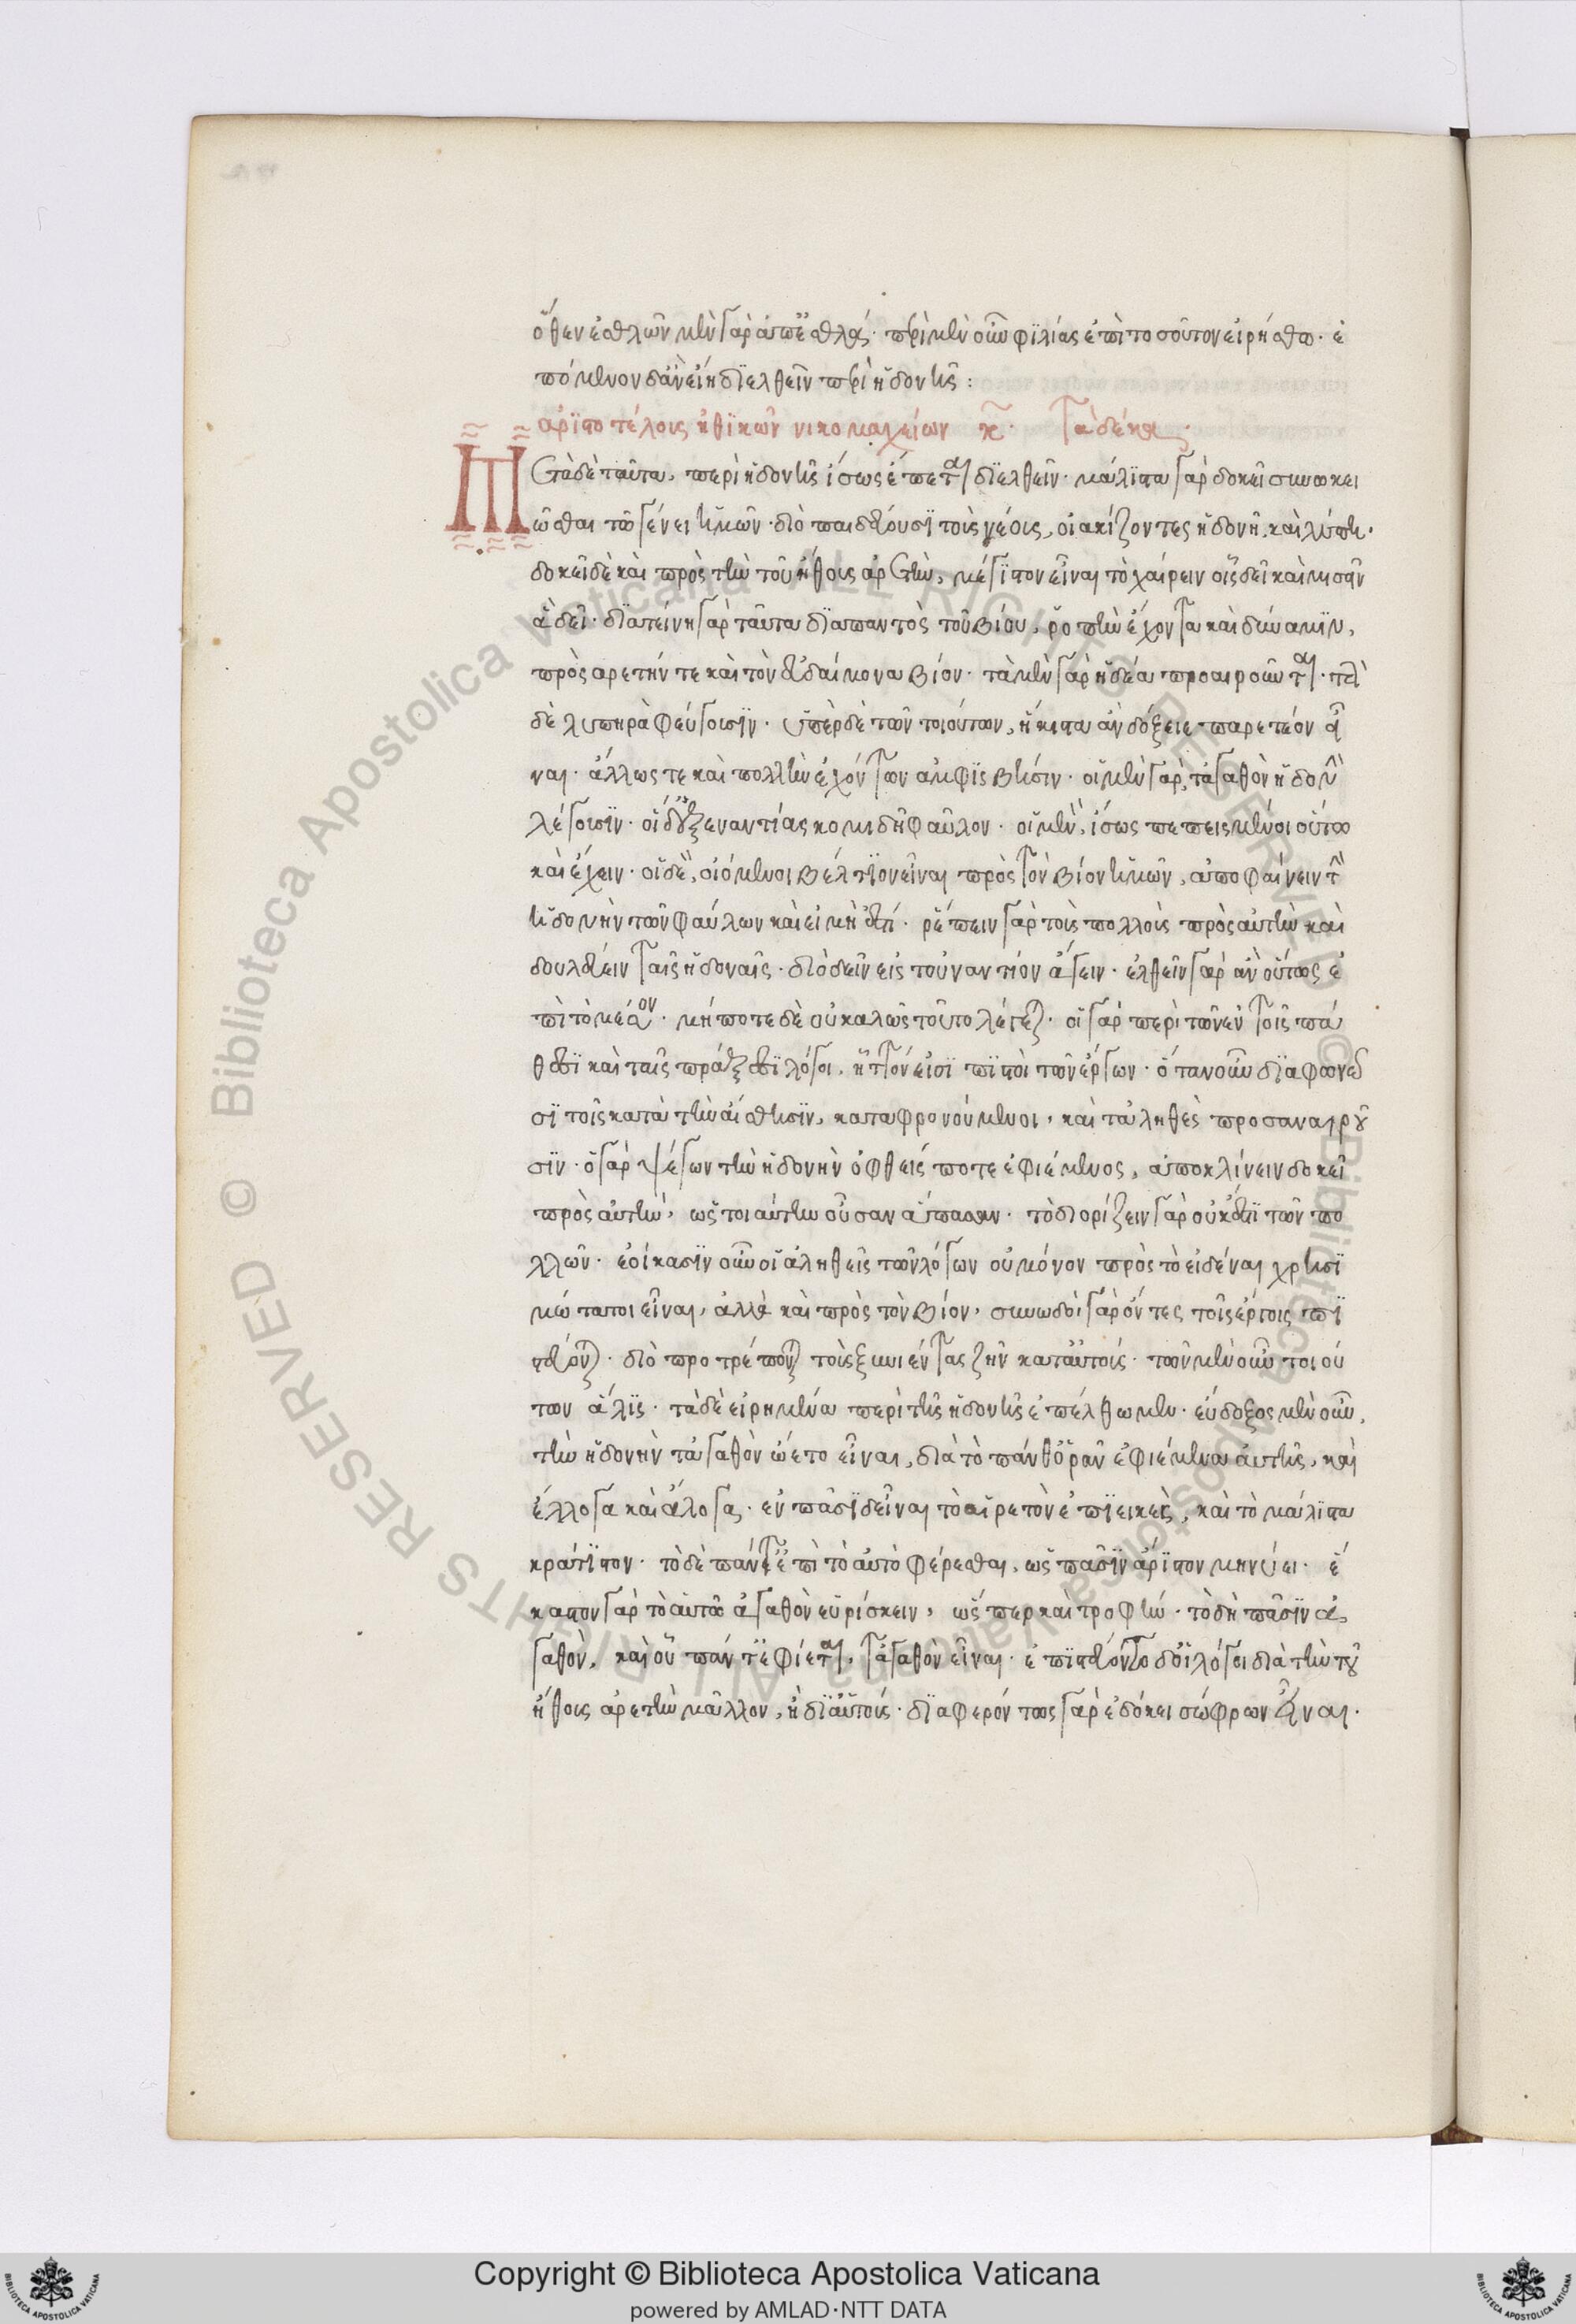 ὅθεν ἐσθλῶν μὲν γὰρ ἀπ' ἐσθλά· περὶ μὲν οὖν φιλίας ἐπὶ τοσοῦτον εἰρήσθω· ἑ
πόμενον δ' ἂν εἴη διελθεῖν περὶ ἡδονῆς:
ἀριστοτέλους ἠθικῶν νικομαχείων κ· τὰ δέκα
Μετὰ δὲ ταῦτα, περὶ ἡδονῆς ἴσως ἕπεται διελθεῖν· μάλιστα γὰρ δοκεῖ συνωκει
ῶσθαι τῶ γένει ἡμῶν· διὸ παιδεύουσι τοὺς νέους, οἰακίζοντες ἡδονῆ, καὶ λύπη·
δοκεῖ δὲ καὶ πρὸς τὴν τοῦ ἤθους ἀρετὴν, μέγιστον εἶναι τὸ χαίρειν οἷς δεῖ καὶ μισεῖν
ἃ δεῖ· διατείνη γὰρ ταῦτα διαπαντὸς τοῦ βίου, ῥοπὴν ἔχοντα καὶ δύναμιν,
πρὸς ἀρετήν τε καὶ τὸν εὐδαίμονα βίον· τὰ μὲν γὰρ ἡδέα προαιροῦνται· τὰ
δὲ λυπηρὰ φεύγουσιν· ὑπὲρ δὲ τῶν τοιούτων, ἥκιστα ἂν δόξειε παρετέον εἶ
ναι· ἄλλως τε καὶ πολλὴν ἐχόντων ἀμφισβήσιν· οἱ μὲν γὰρ, τἀγαθὸν ἡδονὴν
λέγουσιν· οἱ δ' ἐξεναντίας κομιδῆ φαῦλον· οἱ μὲν, ἴσως πεπεισμένοι οὕτω
καὶ ἔχειν· οἱ δὲ, οἰόμενοι βέλτιον εἶναι πρὸς τὸν βίον ἡμῶν, ἀποφαίνειν τὴν
ἡδονὴν τῶν φαύλων καὶ εἰ μὴ ἐστί· ῥέπειν γὰρ τοὺς πολλοὺς πρὸς αὐτὴν καὶ
δουλεύειν ταῖς ἡδοναῖς· διὸ δεῖν εἰς τοὐναντίον ἄγειν· ἐλθεῖν γὰρ ἂν οὕτως ἐ
πὶ τὸ μέσον· μήποτε δὲ οὐ καλῶς τοῦτο λέγεται· οἱ γὰρ περὶ τῶν ἐν τοῖς πά
θεσι καὶ ταῖς πράξεσι λόγοι, ἧττόν εἰσι πιστοὶ τῶν ἔργων· ὅταν οὖν διαφωνῶ
σι τοῖς κατὰ τὴν αἴσθησιν, καταφρονούμενοι, καὶ τἀληθὲς προσαναιροῦ
σιν· ὁ γὰρ ψέγων τὴν ἡδονὴν ὀφθείς ποτε ἐφιέμενος, ἀποκλίνειν δοκεῖ
πρὸς αὐτὴν, ὡς τοιαύτην οὖσαν ἅπασαν· τὸ διορίζειν γὰρ οὐκ ἔστι τῶν πο
λλῶν· ἐοίκασιν οὖν οἱ ἀληθεῖς τῶν λόγων οὐ μόνον πρὸς τὸ εἰδέναι χρησι
μώτατοι εἶναι, ἀλλὰ καὶ πρὸς τὸν βίον, συνωδοὶ γὰρ ὄντες τοῖς ἔργοις πι
στεύονται· διὸ προτρέπονται τοὺς ξυνιέντας ζῆν κατ' αὐτούς· τῶν μὲν οὖν τοιού
των ἅλις· τὰ δὲ εἰρημένα περὶ τῆς ἡδονῆς ἐπέλθωμεν· εὔδοξος μὲν οὖν,
τὴν ἡδονὴν τἀγαθὸν ὤετο εἶναι, διὰ τὸ πάνθ' ὁρᾶν ἐφιέμενα αὐτῆς, καὶ
ἔλλογα καὶ ἄλογα· ἐν πᾶσι δ' εἶναι τὸ αἱρετὸν ἐπιεικὲς, καὶ τὸ μάλιστα
κράτιστον· τὸ δὲ πάντ' ἐπὶ τὸ αὐτὸ φέρεσθαι, ὡς πᾶσιν ἄριστον μηνύει· ἕ
καστον γὰρ τὸ αὑτῶ ἀγαθὸν εὑρίσκειν, ὥσπερ καὶ τροφὴν· τὸ δὴ πᾶσιν ἀ
γαθὸν, καὶ οὗ πάντ' ἐφίεται, τἀγαθὸν εἶναι· ἐπιστεύοντο δ' οἱ λόγοι διὰ τὴν τοῦ
ἤθους ἀρετὴν μᾶλλον, ἢ δι' αὐτούς· διαφερόντως γὰρ ἐδόκει σώφρων εἶναι·
Copyright © Biblioteca Apostolica Vaticana
powered by AMLAD·NTT DATA